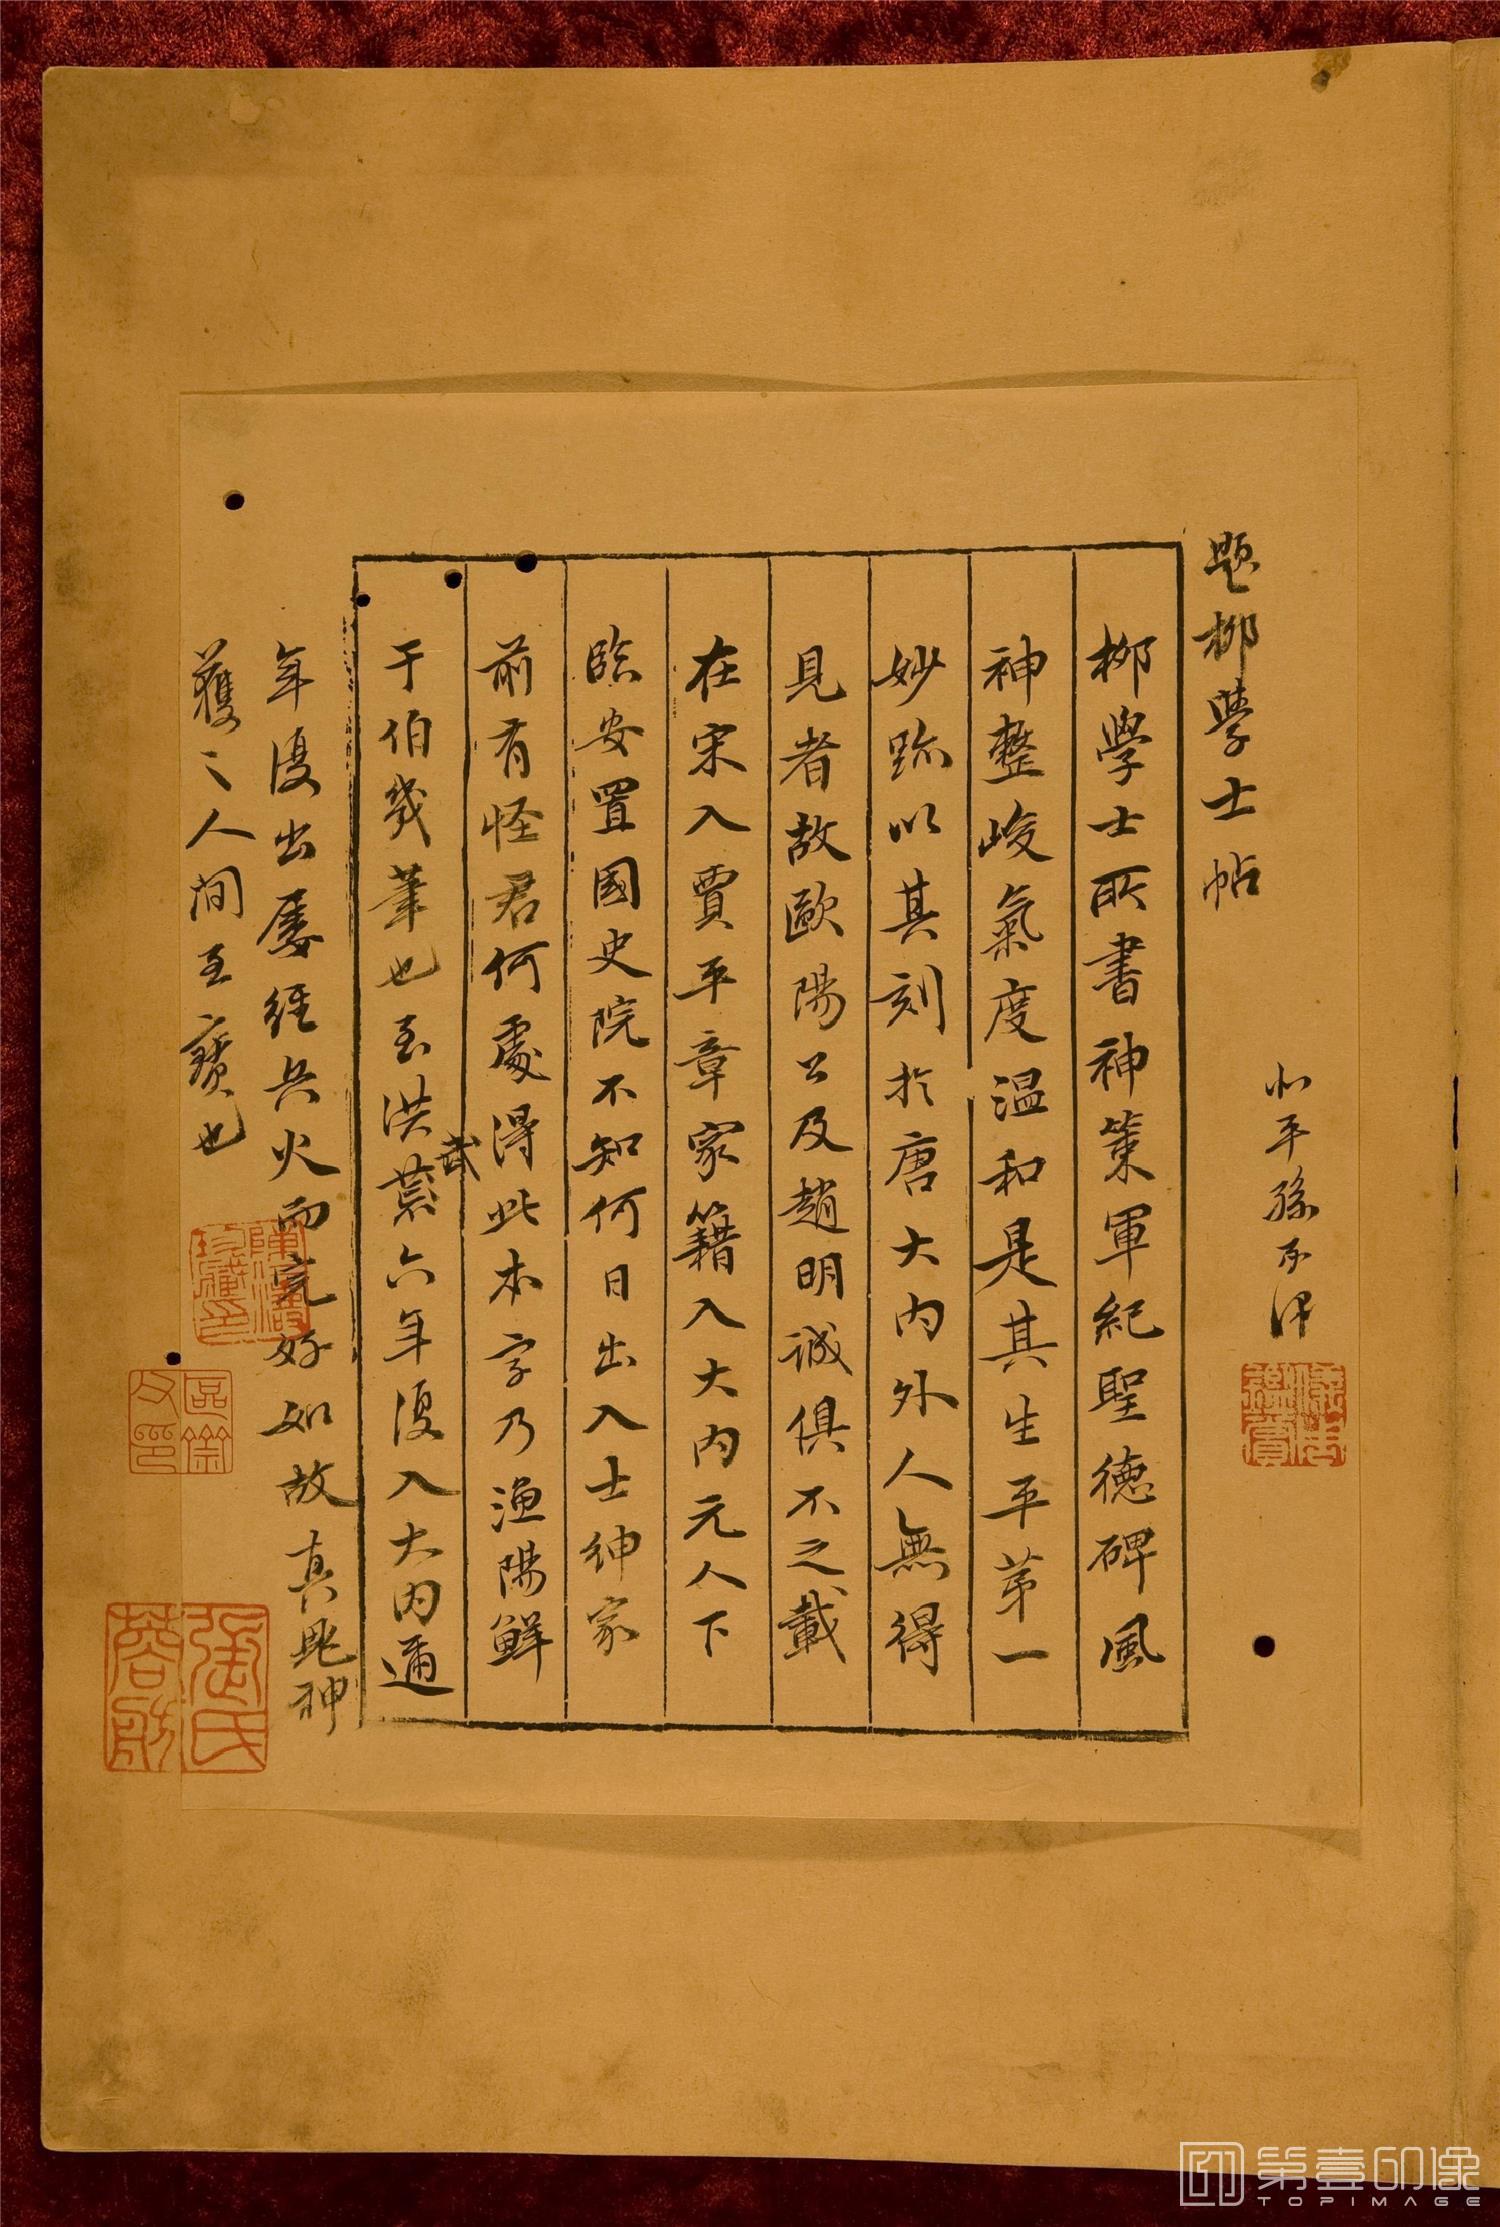 題柳學士帖
北平孫承澤
柳學士所書神策軍紀聖德碑風
神整峻氣度温和是其生平第一
妙跡以其刻於唐大内外人無得
見者故歐陽公及趙明誠俱不之載
在宋入賈平章家籍入大内元人下
臨安置國史院不知何日出入士紳家
前有怪君何處得此本字乃漁陽鮮
于伯幾筆也至洪武六年復入大内邇
年復出屡經兵火而完好如故真毗神
獲之人間至寶也
張氏
蓉舫
第壹印像
TOPIMAGE